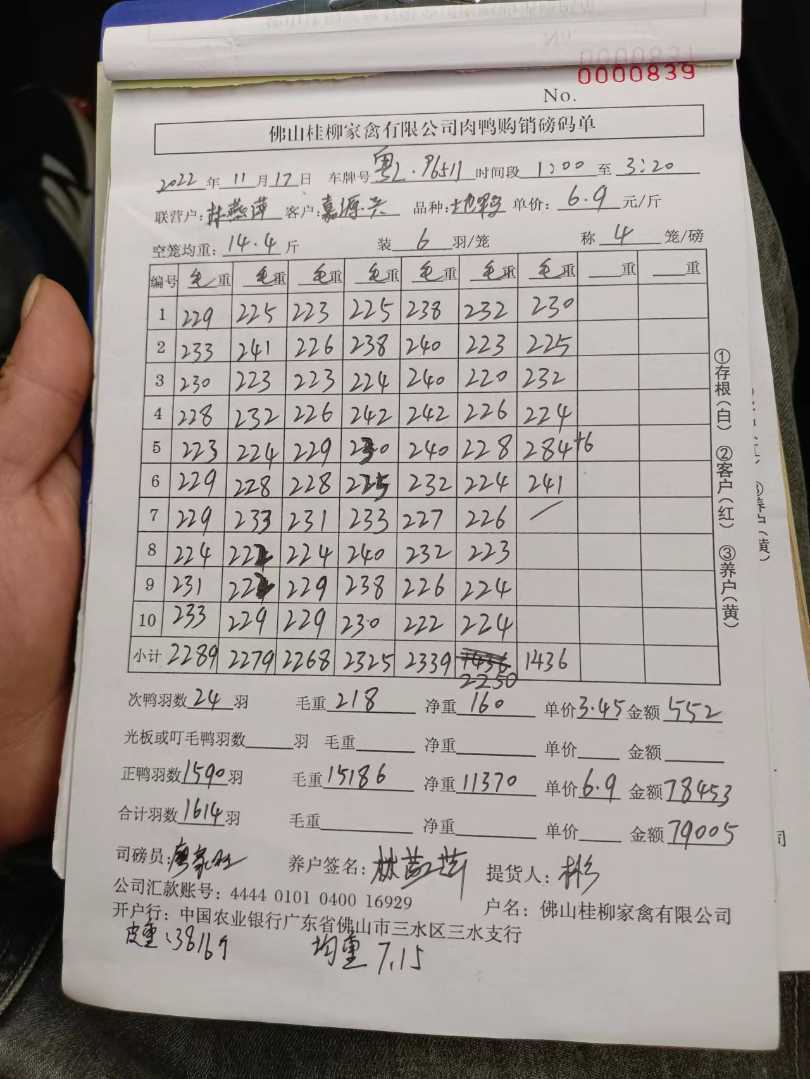 0000839
No.
佛山桂柳家禽有限公司肉鸭购销磅码单
2022 年 11 月 17 日 车牌号 粤L·P6511 时间段 1:00 至 3:20
联营户: 林燕萍 客户: 嘉源兴 品种: 单价: 6.9 元/斤
空笼均重: 14.4 斤 装 6 羽/笼 称 4 笼/磅
编号 毛重 毛重 毛重 毛重 毛重 毛重 毛重 重 重
1 229 225 223 225 238 232 230
2 233 241 226 238 240 223 225
3 230 223 223 224 240 220 232
4 228 232 226 242 242 226 224
5 223 224 229 230 240 228 284+6
6 229 228 228 225 232 224 241
7 229 233 231 233 227 226 /
8 224 222 224 240 232 223
9 231 222 229 238 226 224
10 233 229 229 230 222 224
小计 2289 2279 2268 2325 2339 1436 1436
2250
①存根(白) ②客户(红) ③养户(黄)
次鸭羽数 24 羽 毛重 218 净重 160 单价 3.45 金额 552
光板或叮毛鸭羽数 羽 毛重 净重 单价 金额
正鸭羽数 1590 羽 毛重 15186 净重 11370 单价 6.9 金额 78453
合计羽数 1614 羽 毛重 净重 单价 金额 79005
司磅员: 养户签名: 林燕萍 提货人: 彬
公司汇款账号: 4444 0101 0400 16929 户名: 佛山桂柳家禽有限公司
开户行: 中国农业银行广东省佛山市三水区三水支行
皮重: 3816 均重 7.15